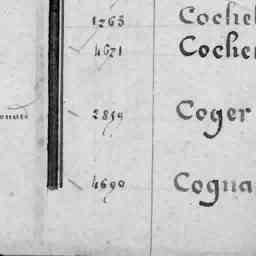 1265 Cochel
4671 Cocher
2859 Coger
4690 Cogna